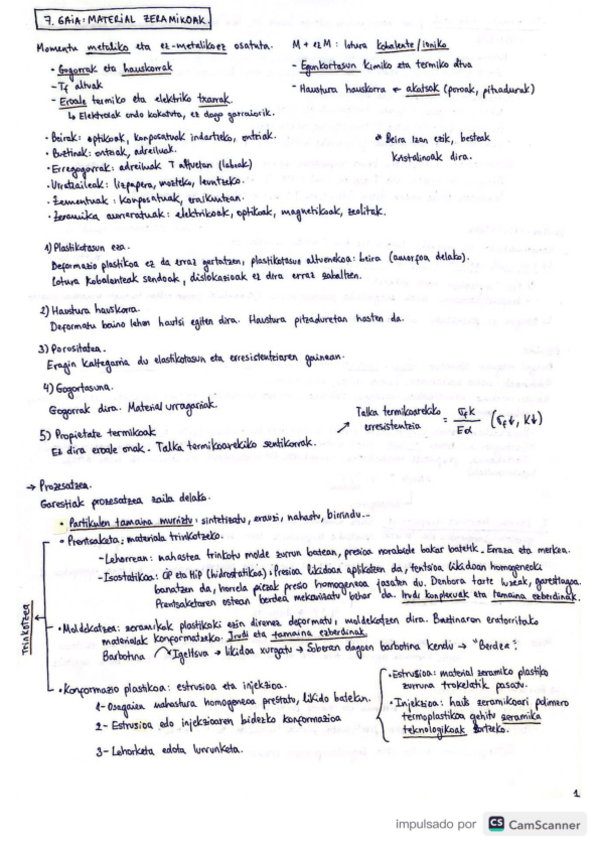 7. GAIA: MATERIAL ZERAMIKOAK.
Momentu metaliko eta ez-metalikoez osatuta.
M + ez M: lotura kobalente / ioniko
- Gogorrak eta hauskorrak
- Tf altuak
- Eroale termiko eta elektriko txarrak.
↳ Elektroiak ondo kokatuta, ez dago garraiorik.
- Egonkortasun kimiko eta termiko altua
- Haustura hauskorra ← akatsak (poroak, pitzadurak)
• Beirak: optikoak, konposatuak indartzeko, ontziak.
• Buztinak: ontziak, adreiluak.
• Erregogorrak: adreiluak T altuetan (labeak)
• Urratzaileak: lizpapera, mozteko, leuntzeko.
• Zementuak: konposatuak, eraikuntzan.
• Zeramika aurreratuak: elektrikoak, optikoak, magnetikoak, zeolitak.
* Beira izan ezik, besteak
kristalinoak dira.
1) Plastikotasun eza.
Deformazio plastikoa ez da erraz gertatzen, plastikotasun altuenekoa: beira (amorfoa delako).
Lotura kobalenteak sendoak, dislokazioak ez dira erraz zabaltzen.
2) Haustura hauskorra.
Deformatu baino lehen hautsi egiten dira. Haustura pitzaduretan hasten da.
3) Porositatea.
Eragin kaltegarria du elastikotasun eta erresistentziaren gainean.
4) Gogortasuna.
Gogorrak dira. Material urragarriak.
5) Propietate termikoak
Ez dira eroale onak. Talka termikoarekiko sentikorrak.
↗ Talka termikoarekiko erresistentzia = σf K / Eα (σf↓, K↓)
→ Prozesatzea.
Garestiak prozesatzea zaila delako.
• Partikulen tamaina murriztu: sintetizatu, erauzi, nahastu, birrindu...
Trinkotzea
• Prentsaketa: materiala trinkotzeko.
- Lehorrean: nahastea trinkotu molde zurrun batean, presioa norabide bakar batetik. Erraza eta merkea.
- Isostatikoa: CP eta HIP (hidrostatikoa): Presioa likidoan aplikatzen da, tentsioa likidoan homogeneoki
banatzen da, horrela piezak presio homogeneoa jasaten du. Denbora tarte luzeak, garestiagoa.
Prentsaketaren ostean berdea mekanizatu behar da. Irudi konplexuak eta tamaina ezberdinak.
• Moldekatzea: zeramikak plastikoki ezin direnez deformatu, moldekatzen dira. Buztinaren eratorritako
materialak konformatzeko. Irudi eta tamaina ezberdinak.
Barbotina ↷ Igeltsua → likidoa xurgatu → Soberan dagoen barbotina kendu → "Berdea".
• Konformazio plastikoa: estrusioa eta injekzioa.
1- Osagaien nahastura homogeneoa prestatu, likido batekin.
2- Estrusioa edo injekzioaren bidezko konformazioa
3- Lehorketa edota lurrunketa.
• Estrusioa: material zeramiko plastiko
zurruna trokelatik pasatu.
• Injekzioa: hauts zeramikoari polimero
termoplastikoa gehitu zeramika
teknologikoak sortzeko.
1
impulsado por CS CamScanner